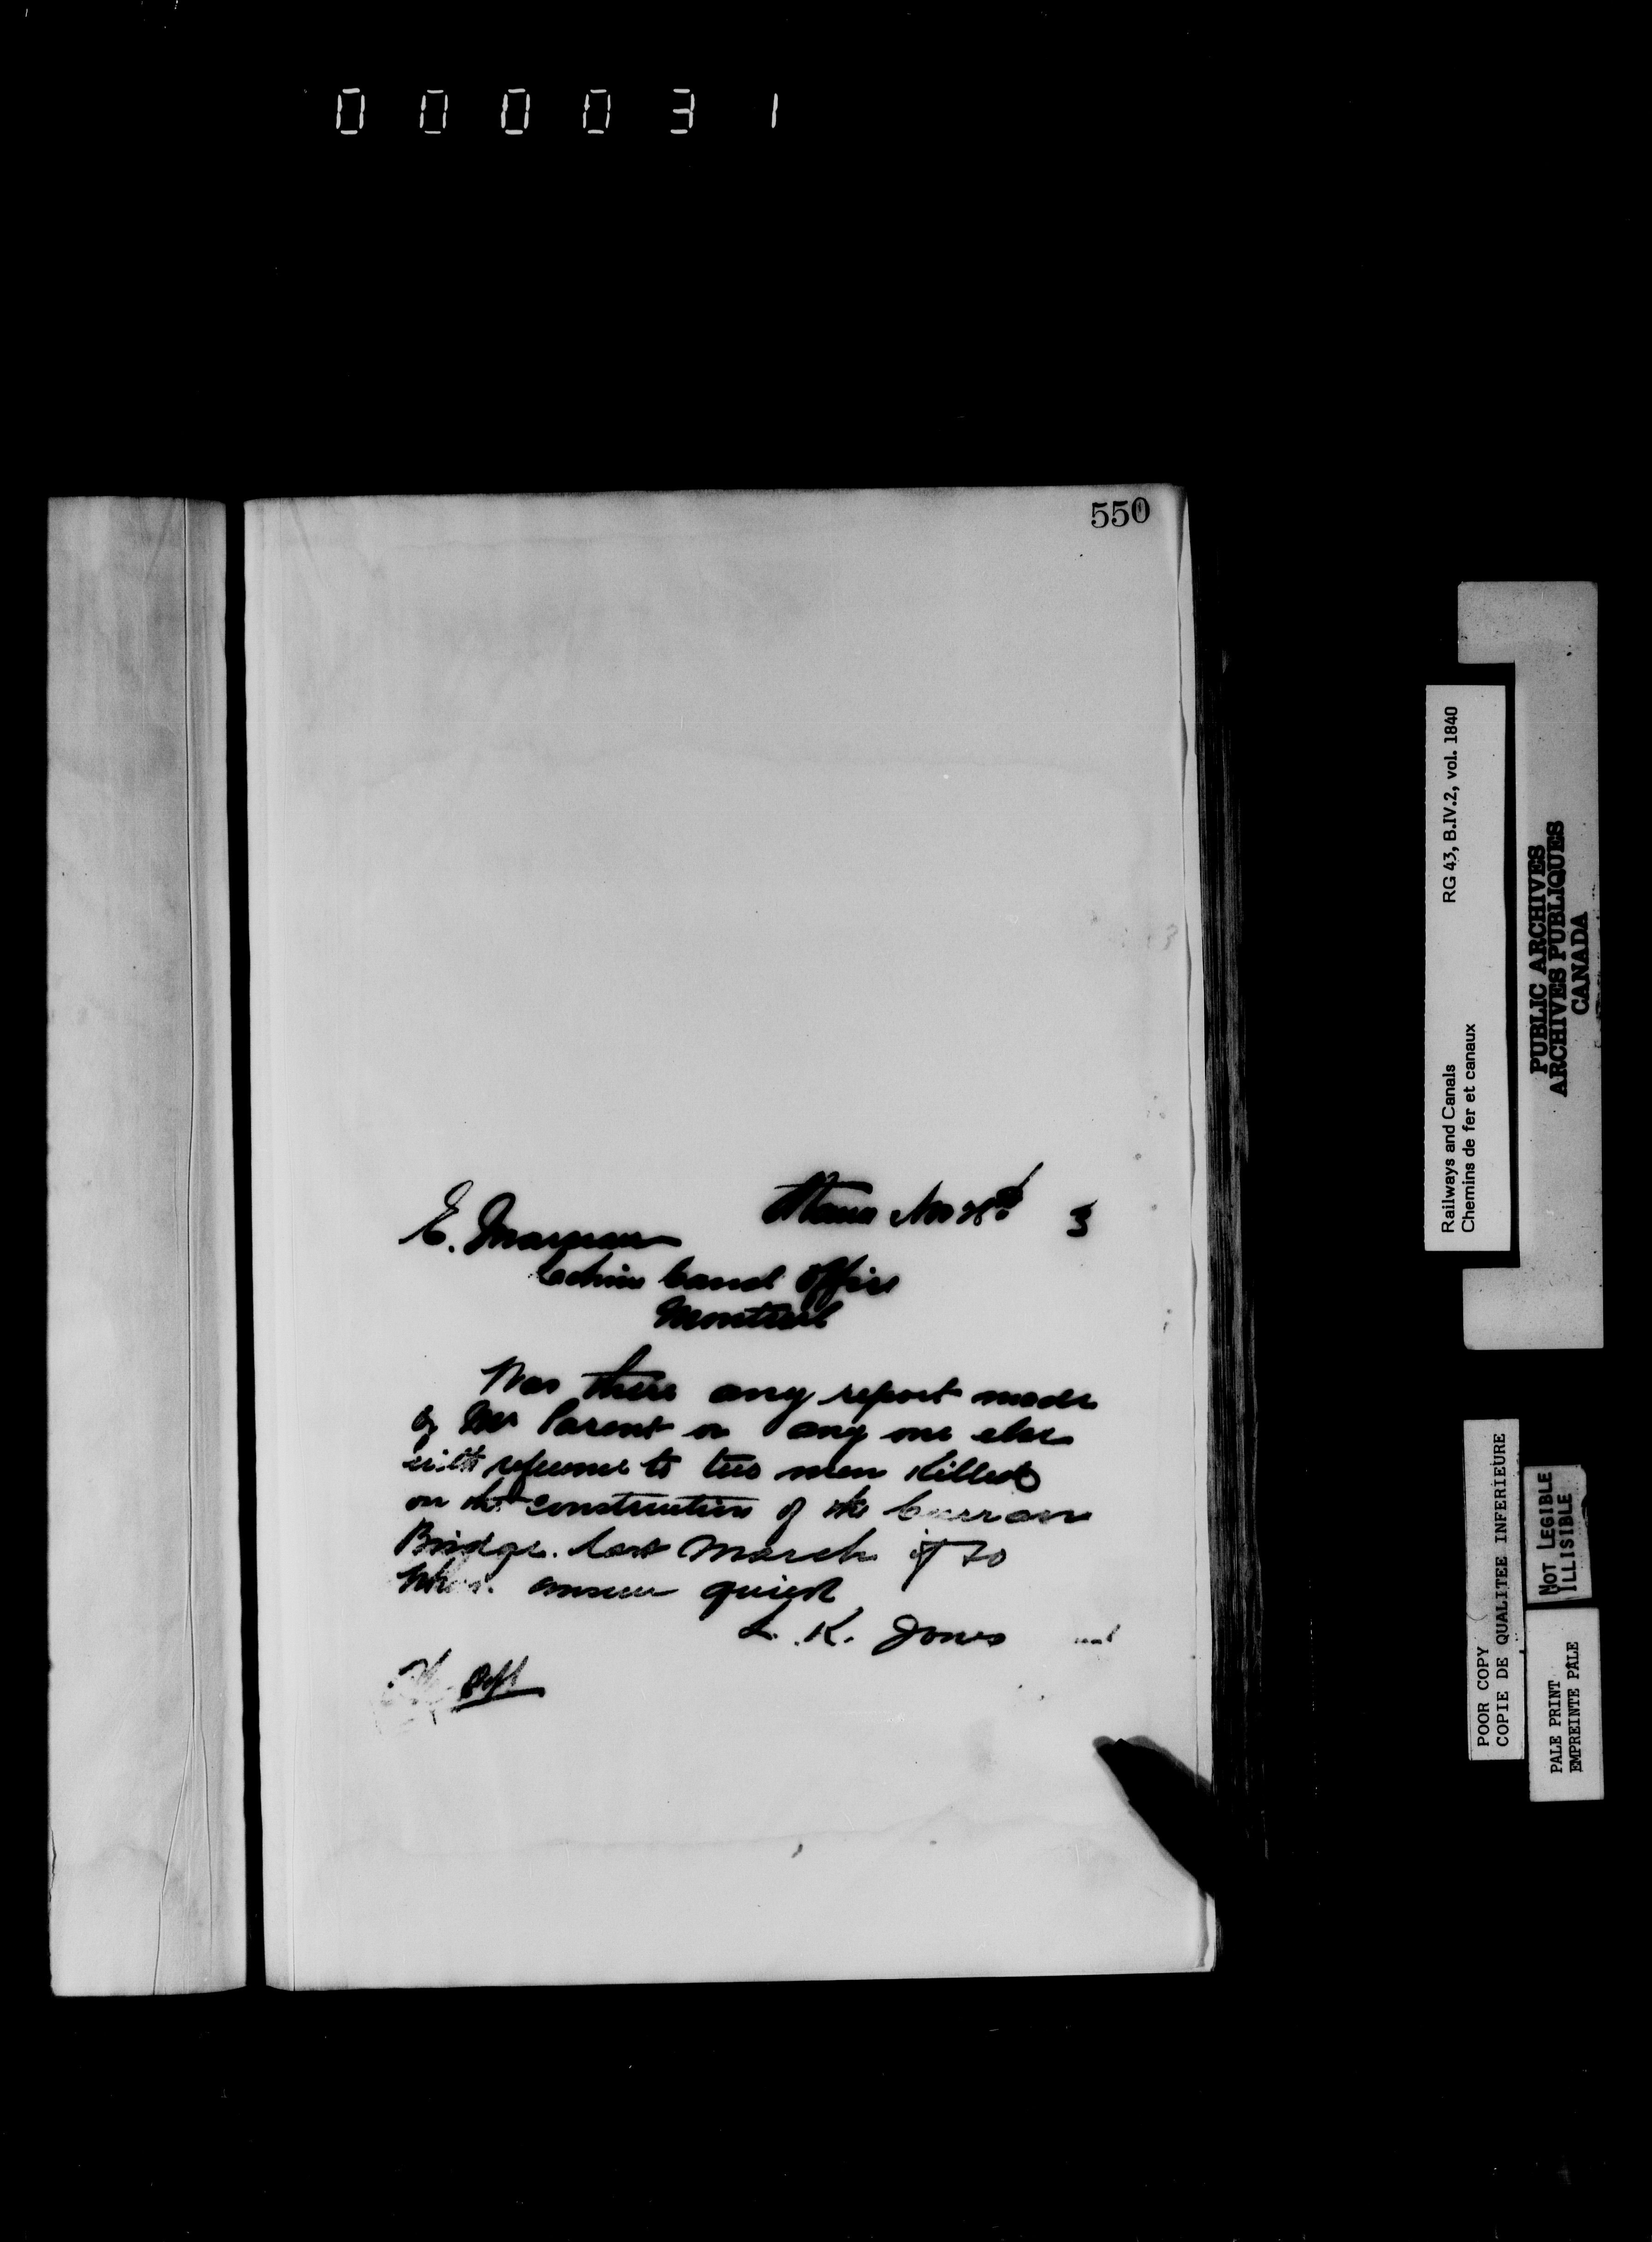 000031
550
Ottawa Nov
3
E.
Lachine Canal Office
Montreal
Was there any report made
by Mr Parent or any one else
with reference to two men killed
on the construction of the Curran
Bridge. last March if so
when. answer quick
L. K. Jones
Railways and Canals RG 43, B.IV.2, vol. 1840
Chemins de fer et canaux
PUBLIC ARCHIVES
ARCHIVES PUBLIQUES
CANADA
POOR COPY
COPIE DE QUALITEE INFERIEURE
NOT LEGIBLE
ILLISIBLE
PALE PRINT
EMPREINTE PALE